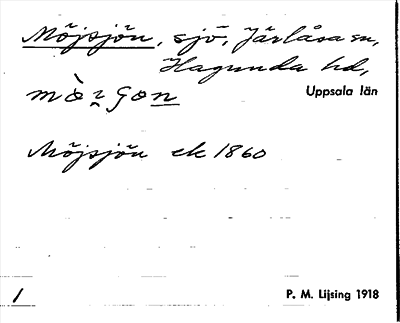 Möjsjön, sjö, Järlåsa sn,
Hagunda hd,
Uppsala län
Möjsjön ek 1860
1
P. M. Lijsing 1918